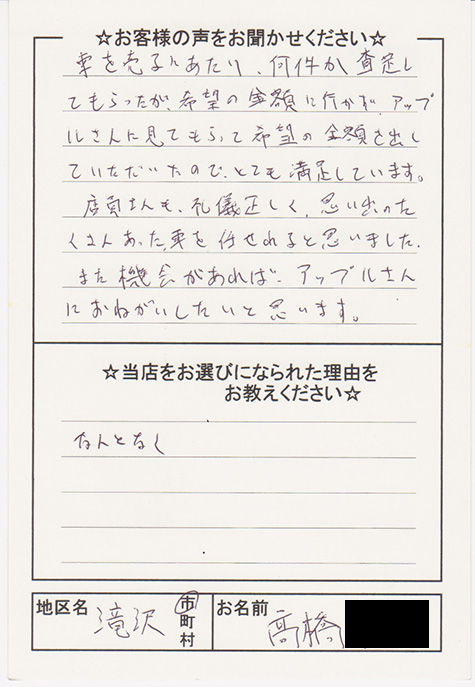 ☆お客様の声をお聞かせください☆
車を売るにあたり、何件か査定し
てもらったが、希望の金額に行かず、アップ
ルさんに見てもらって希望の金額を出し
ていただいたので、とても満足しています。
店員さんも、礼儀正しく、思い出のた
くさんあった車を任せれると思いました。
また機会があれば、アップルさん
におねがいしたいと思います。
☆当店をお選びになられた理由を
お教えください☆
なんとなく
地区名 滝沢 市町村 お名前 高橋